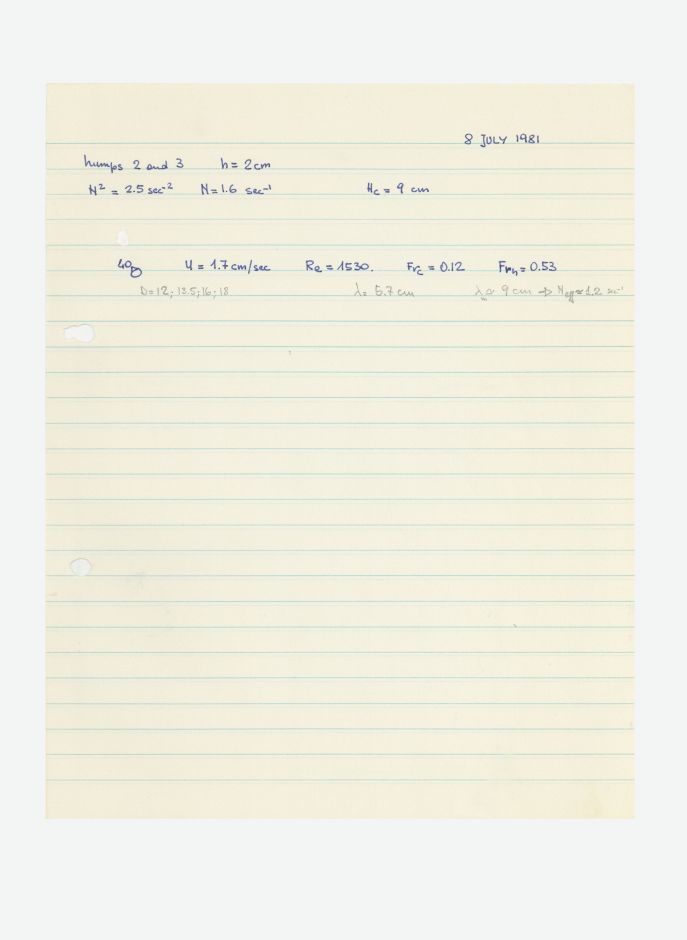 8 JULY 1981
humps 2 and 3 h = 2 cm
N² = 2.5 sec⁻² N = 1.6 sec⁻¹ Hc = 9 cm
40g U = 1.7 cm/sec Re = 1530. Frc = 0.12 Frh = 0.53
D = 12; 13.5; 16; 18 λ = 5.7 cm λm ≈ 9 cm ⇒ Neff ≈ 1.2 sec⁻¹